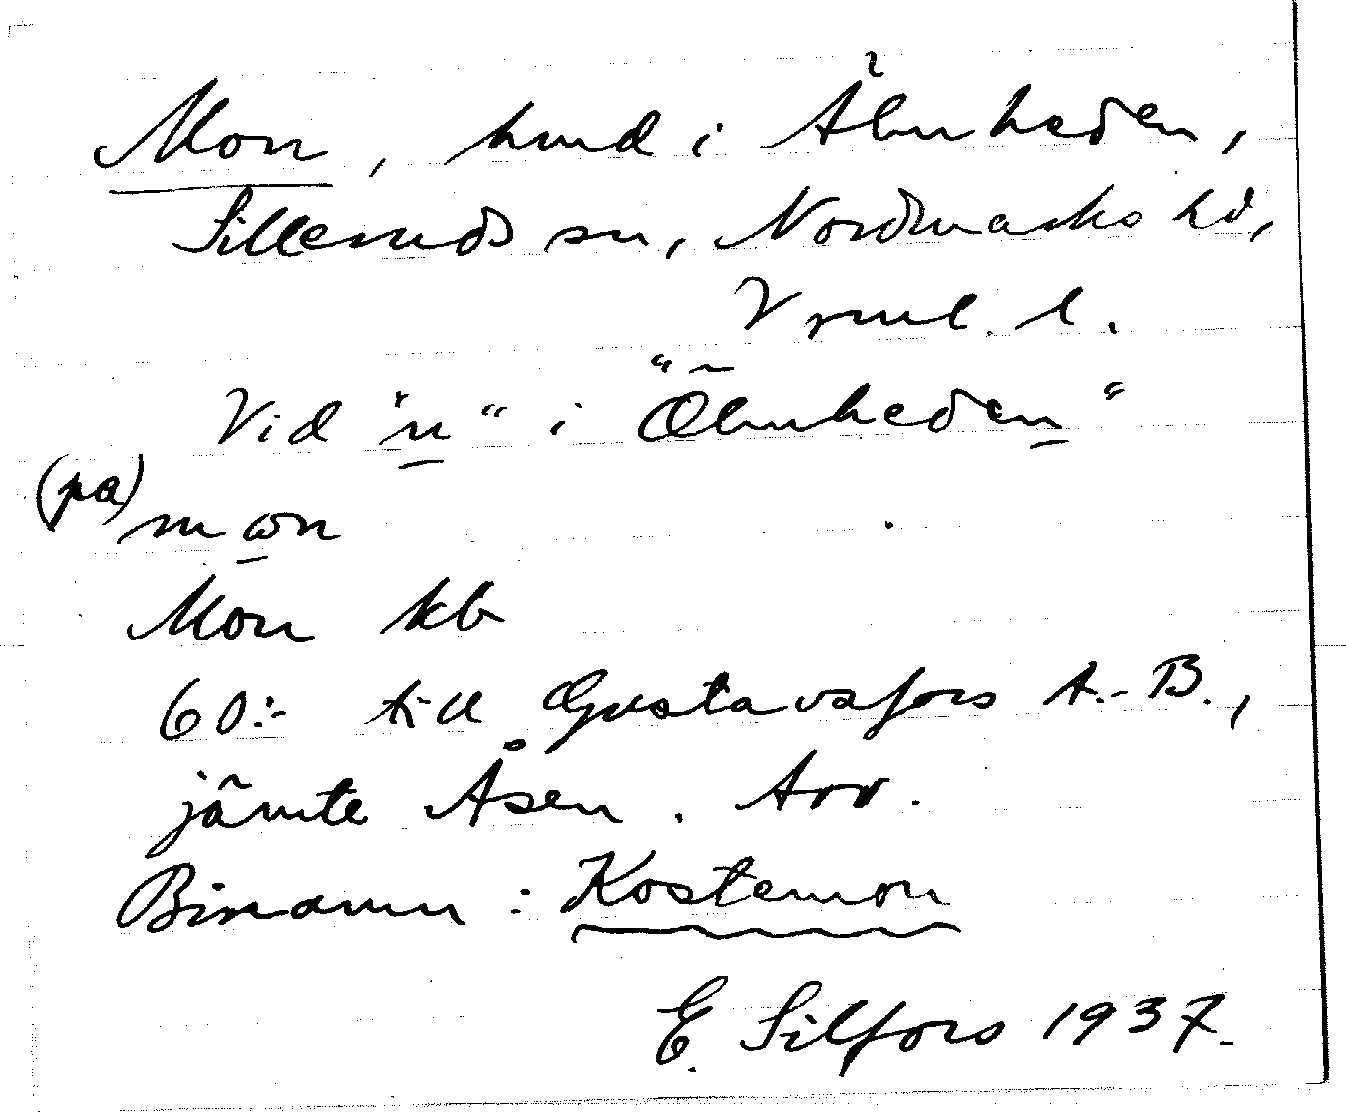 Mon, hmd i Älmheden,
Silleruds sn, Nordmarks hd,
Vrml. l.
Vid "n" i "Ölmheden"
(pa) mωn
Mon kb
60:- till Gustavsfors A.-B.,
jämte Åsen. Arr.
Binamn: Kostemon
E. Silfors 1937.